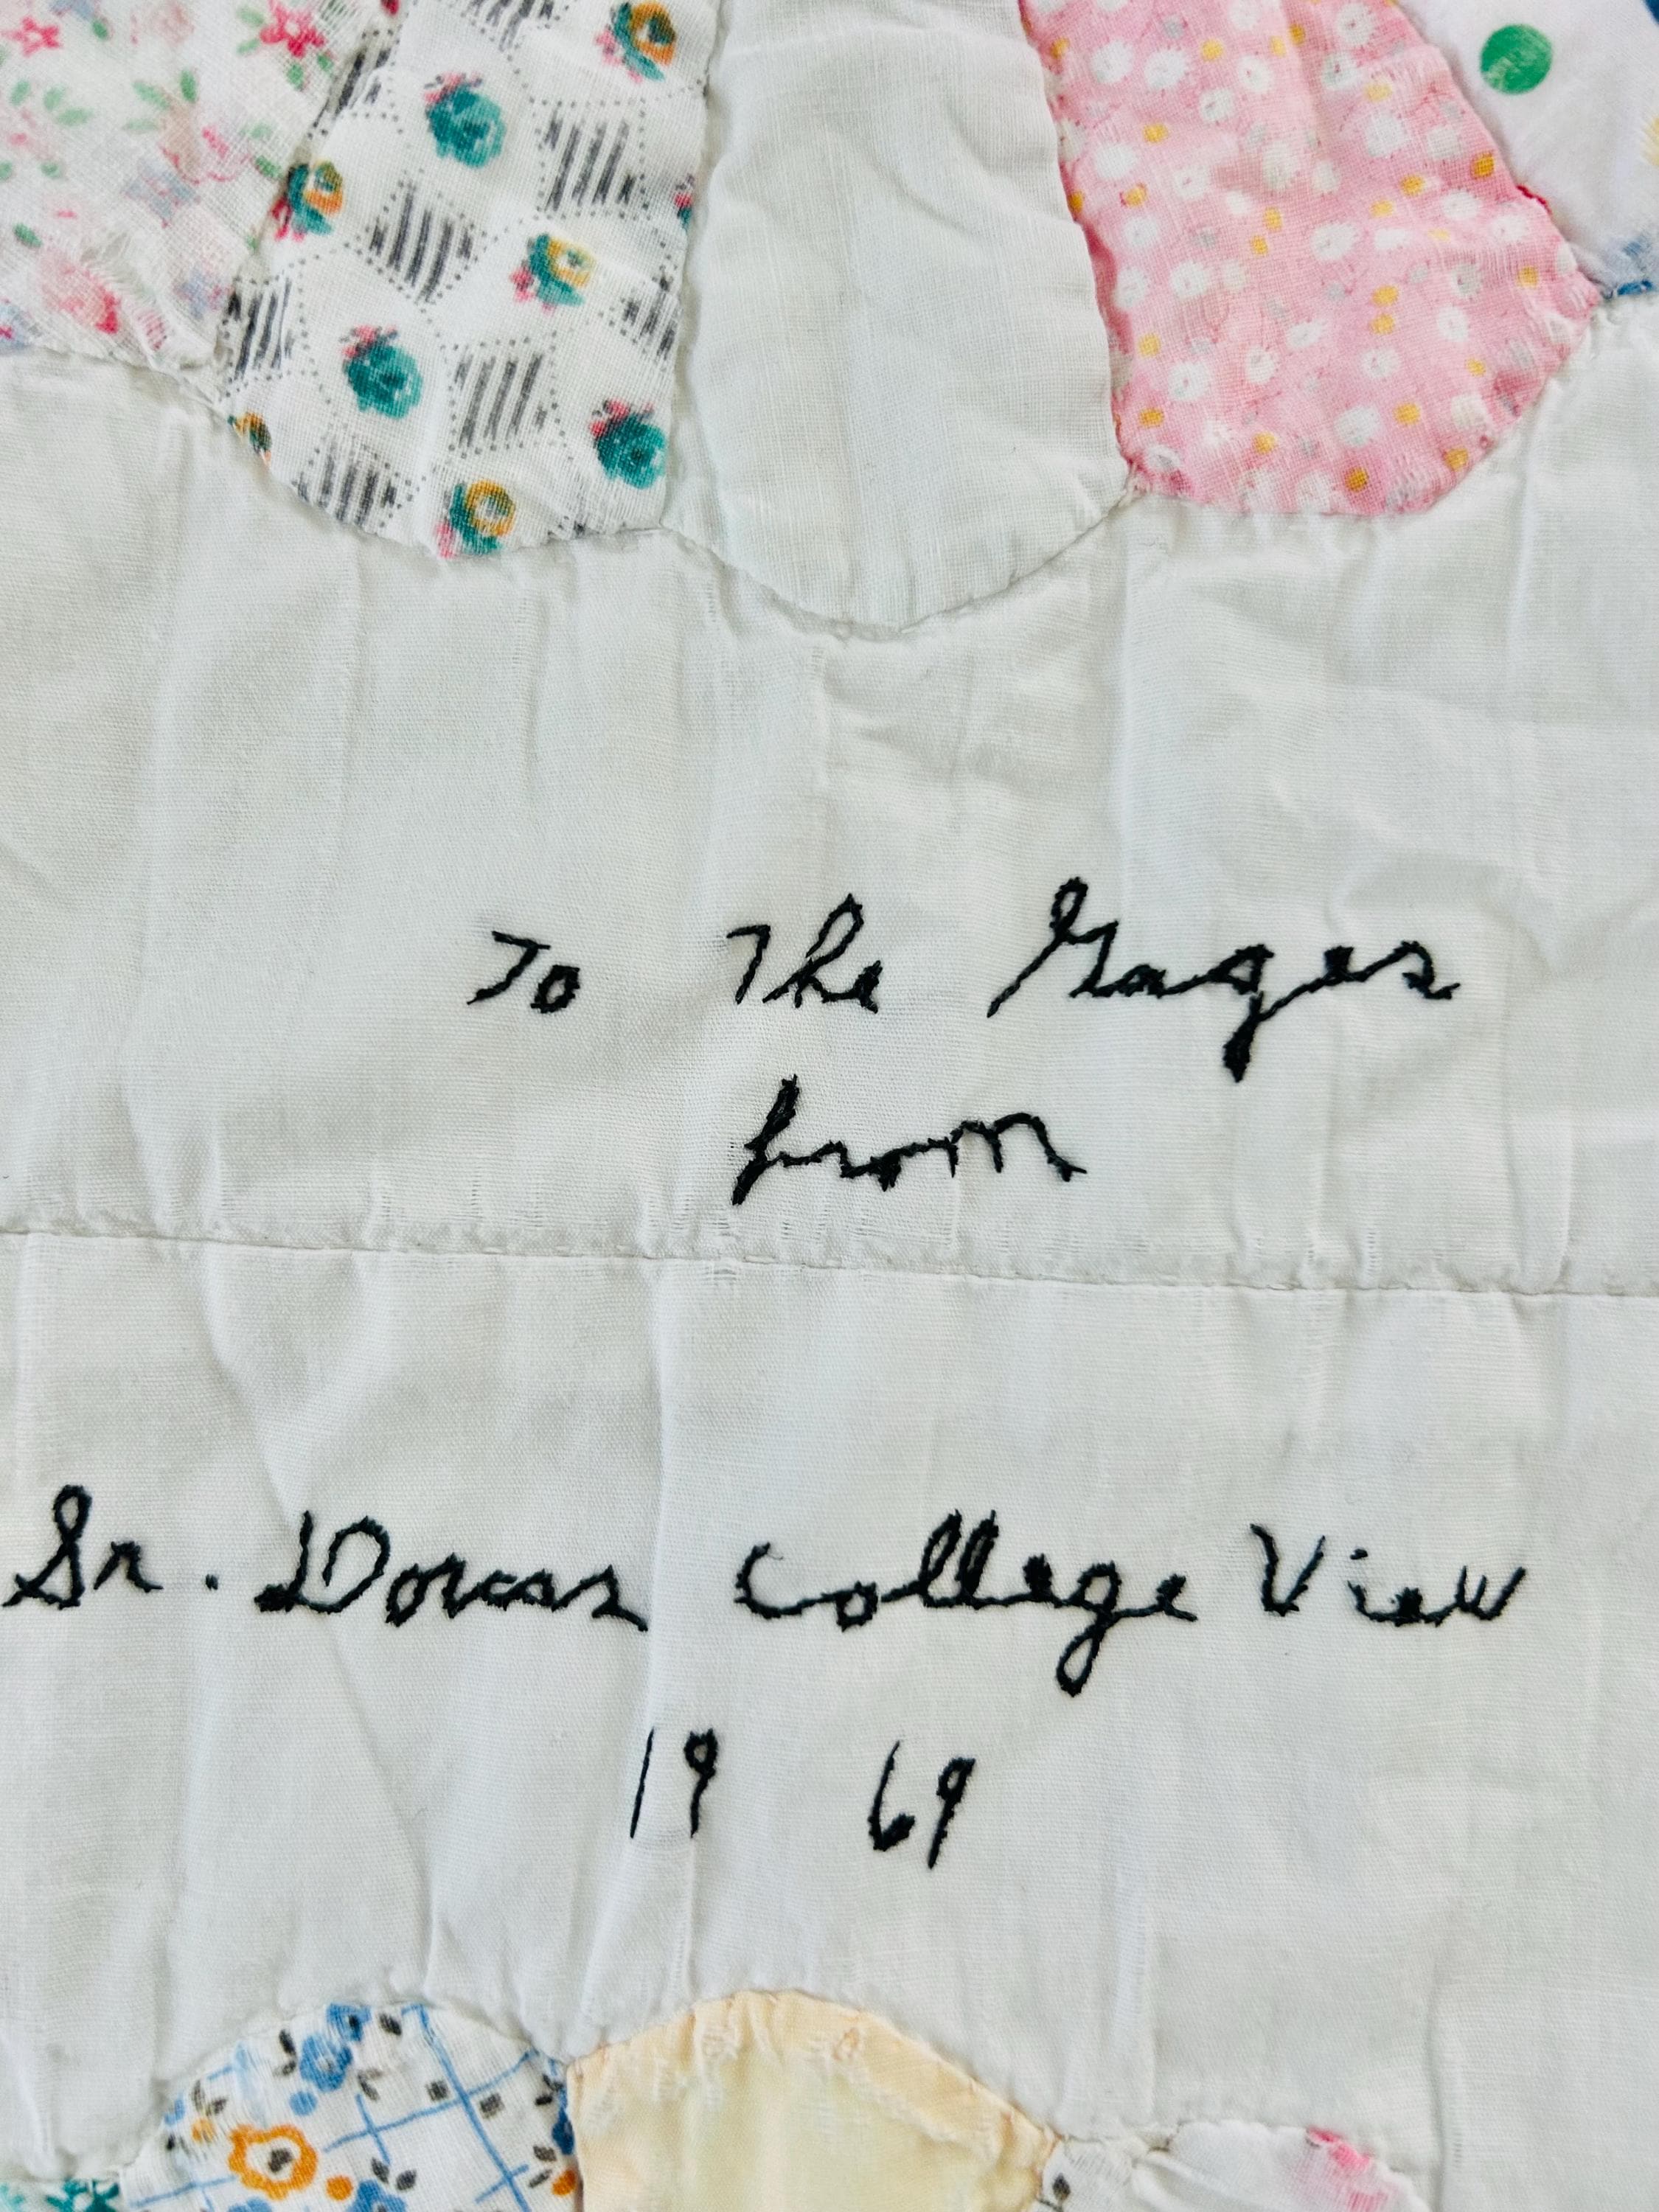 To The Gages
from
Sr. Dorcas College View
19 69